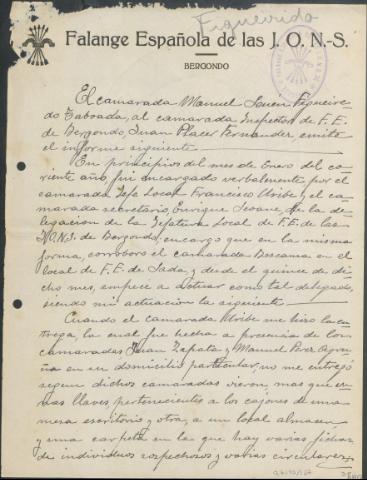 Figueirido
Falange Española de las J. O. N.-S.
BERGONDO
El camarada Manuel Figueire-
do Taboada, al camarada Inspector de F. E.
de Bergondo, Juan Placer Fernandez, emite
el informe siguiente
En principios del mes de Enero del co-
rriente año, fui encargado verbalmente por el
camarada Jefe Local Francisco Uribe y el ca-
marada secretario, Enrique Seoane, de la de-
legacion de la Jefatura Local de F. E. de las
J.O.N.S. de Bergondo, encargo que en la misma
forma, corroboro el camarada Bescansa en el
local de F. E. de Sada, y desde el quince de di-
cho mes, empece a actuar como tal delegado,
siendo mi actuación la siguiente
Cuando el camarada Uribe me hizo la en-
trega, la cual fue hecha a presencia de los
camaradas Juan Zapata y Manuel Perez
en su domicilio particular, no me entregó
segun dichos camaradas vieron, mas que u-
nas llaves, pertenecientes a los cajones de una
mesa escritorio y otra, a un local almacen
y una carpeta en la que hay varias fichas
de individuos sospechosos y varias circulares